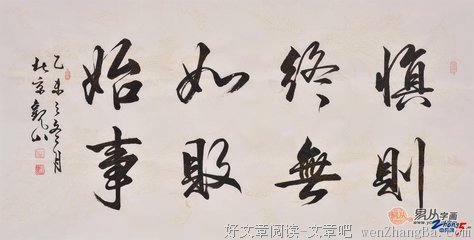 慎終如始
則無敗事
乙未之冬月
京山
易从字画
好文章阅读-文章吧 wenZhangBa